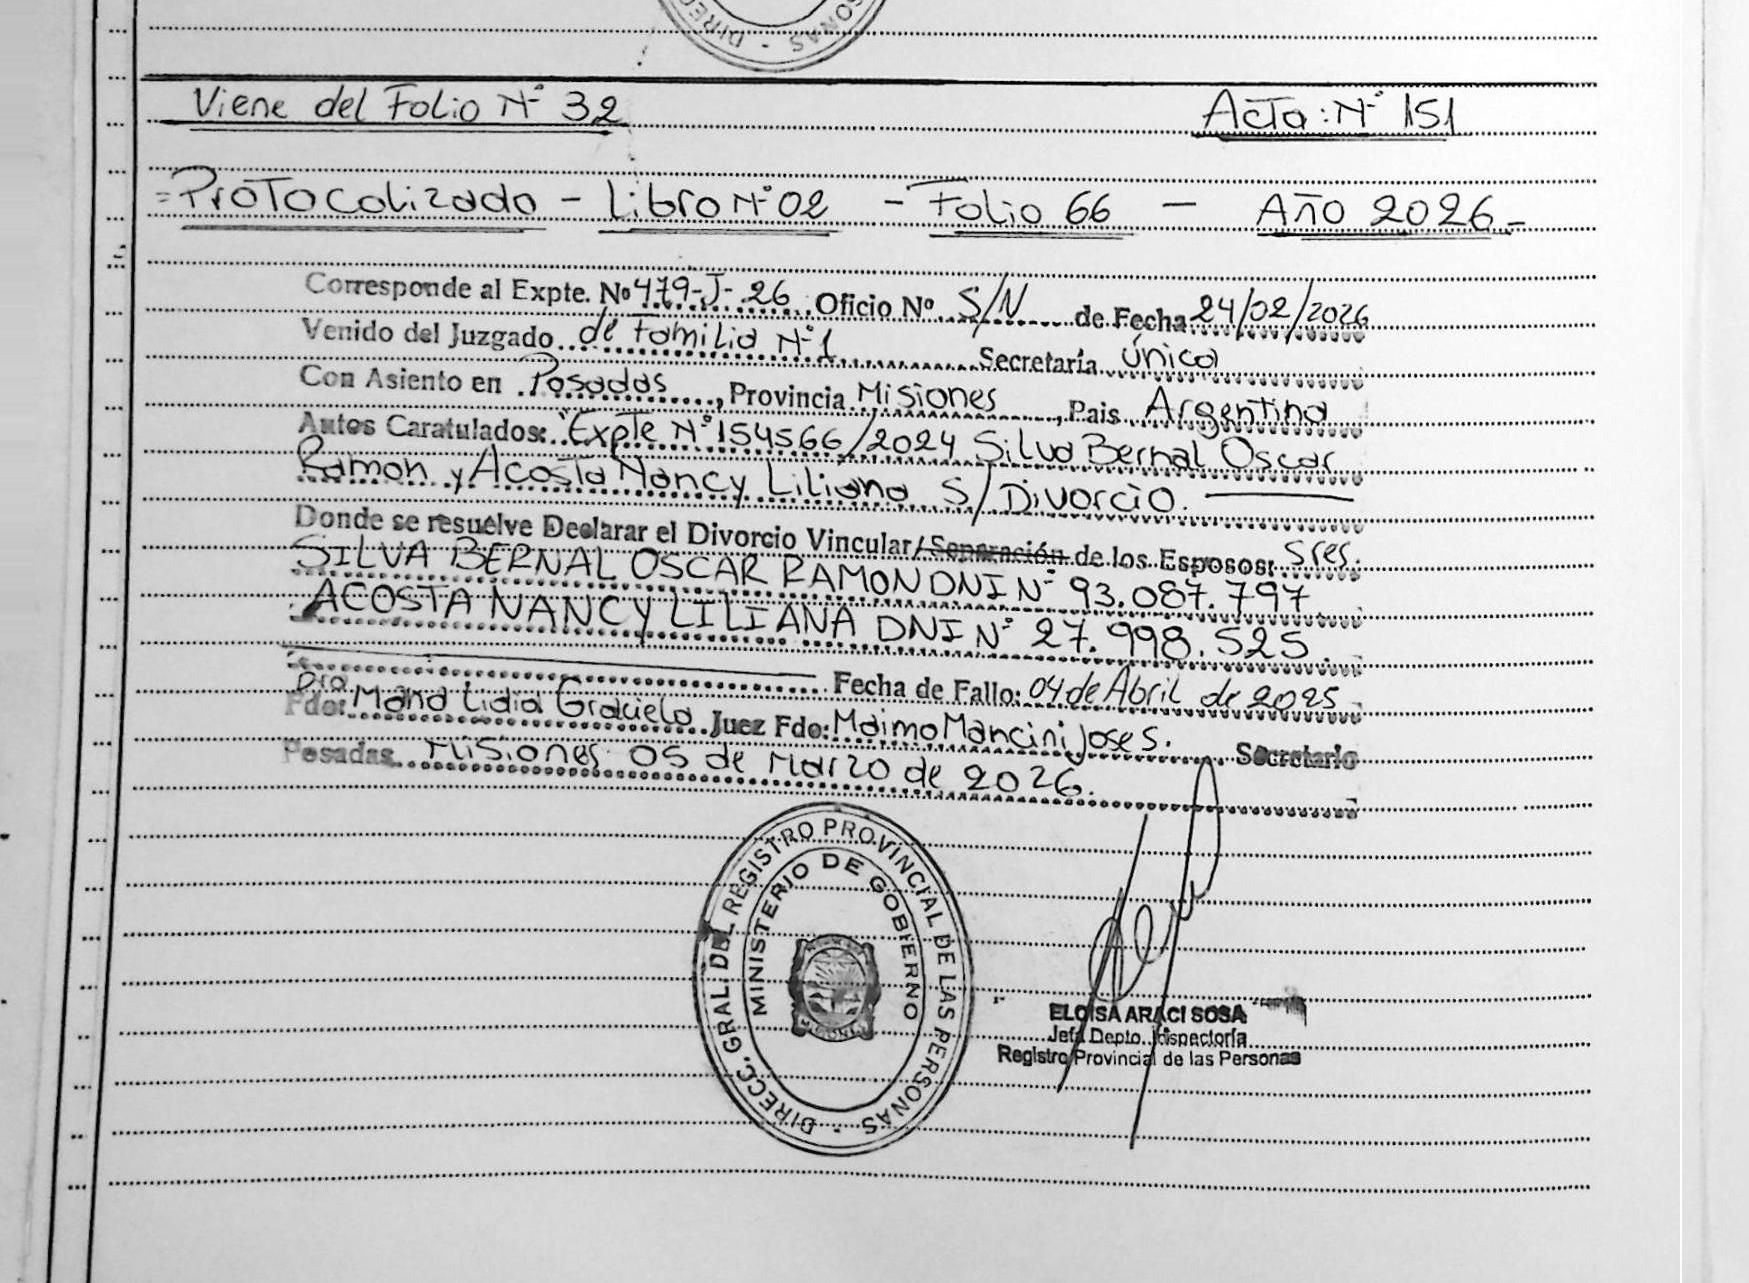 DIRECC - SONAS
Viene del Folio N° 32
Acta: N° 151
=Protocolizado - Libro N° 02 - Folio 66 - Año 2026-
Corresponde al Expte. Nº 479-J-26 Oficio Nº S/N de Fecha 24/02/2026
Venido del Juzgado de Familia N°1 Secretaría única
Con Asiento en Posadas, Provincia Misiones, Pais Argentina
Autos Caratulados: "Expte N° 154566/2024 Silva Bernal Oscar
Ramon y Acosta Nancy Liliana S/Divorcio.
Donde se resuelve Declarar el Divorcio Vincular/Separación de los Esposos: Sres.
SILVA BERNAL OSCAR RAMON DNI N° 93.087.797
ACOSTA NANCY LILIANA DNI N° 27.998.525.
Fecha de Fallo: 04 de Abril de 2025
Dra
Fdo: Lidia Graciela Juez Fdo: Maimo Mancini Jose S. Secretario
Posadas. Misiones 05 de Marzo de 2026.
DIRECC. GRAL. DEL REGISTRO PROVINCIAL DE LAS PERSONAS -
MINISTERIO DE GOBIERNO
ELOISA ARACI SOSA
Jefa Depto. Inspectoría
Registro Provincial de las Personas